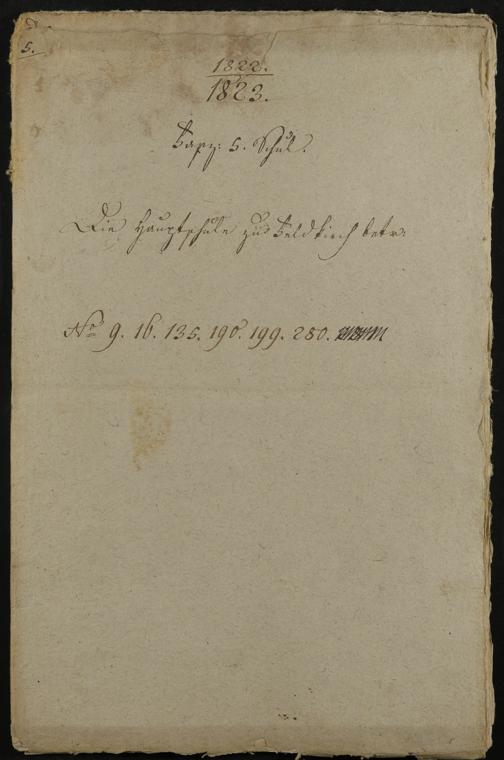 5.
1822.
1823.
Fasz: 5. Schul.
Die Hauptschule zu Feldkirch betr:
No 9. 16. 135. 190. 199. 280.